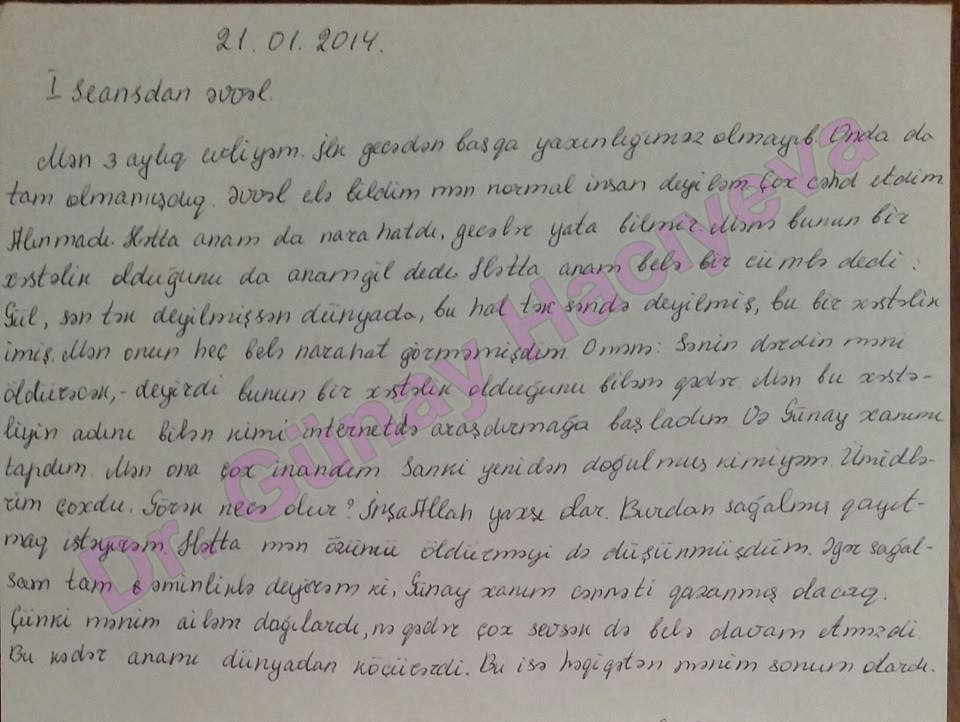 21.01.2014.
I Seansdan əvvəl.
Mən 3 aylıq evliyəm. İlk gecədən başqa yaxınlığımız olmayıb. Onda da
tam olmamışdıq. Əvvəl elə bildim mən normal insan deyiləm. Çox cəhd etdim.
Alınmadı. Hətta anam da narahatdı, gecələr yata bilmir. Mənə bunun bir
xəstəlik olduğunu da anamgil dedi. Hətta anam belə bir cümlə dedi:
Gül, sən tək deyilmişsən dünyada, bu hal tək səndə deyilmiş, bu bir xəstəlik
imiş. Mən onun heç belə narahat görməmişdim. O mənə: Sənin dərdin məni
öldürəcək,- deyirdi bunun bir xəstəlik olduğunu bilənə qədər. Mən bu xəstə-
liyin adını bilən kimi internetdə araşdırmağa başladım. Və Günay xanımı
tapdım. Mən ona çox inandım. Sanki yenidən doğulmuş kimiyəm. Ümidlə-
rim çoxdu. Görək necə olur? İnşaAllah yaxşı olar. Burdan sağalmış qayıt-
maq istəyirəm. Hətta mən özümü öldürməyi də düşünmüşdüm. Əgər sağal-
sam tam əminliklə deyirəm ki, Günay xanım cənnəti qazanmış olacaq.
Çünki mənim ailəm dağılardı, nə qədər çox sevsək də belə davam etməzdi.
Bu kədər anamı dünyadan köçürərdi. Bu isə həqiqətən mənim sonum olardı.
Dr. Günay Hacıyeva